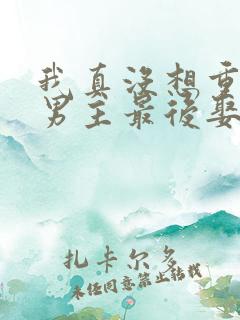 我真没想重
男主最后娶
扎卡尔多
未经同意禁止转载